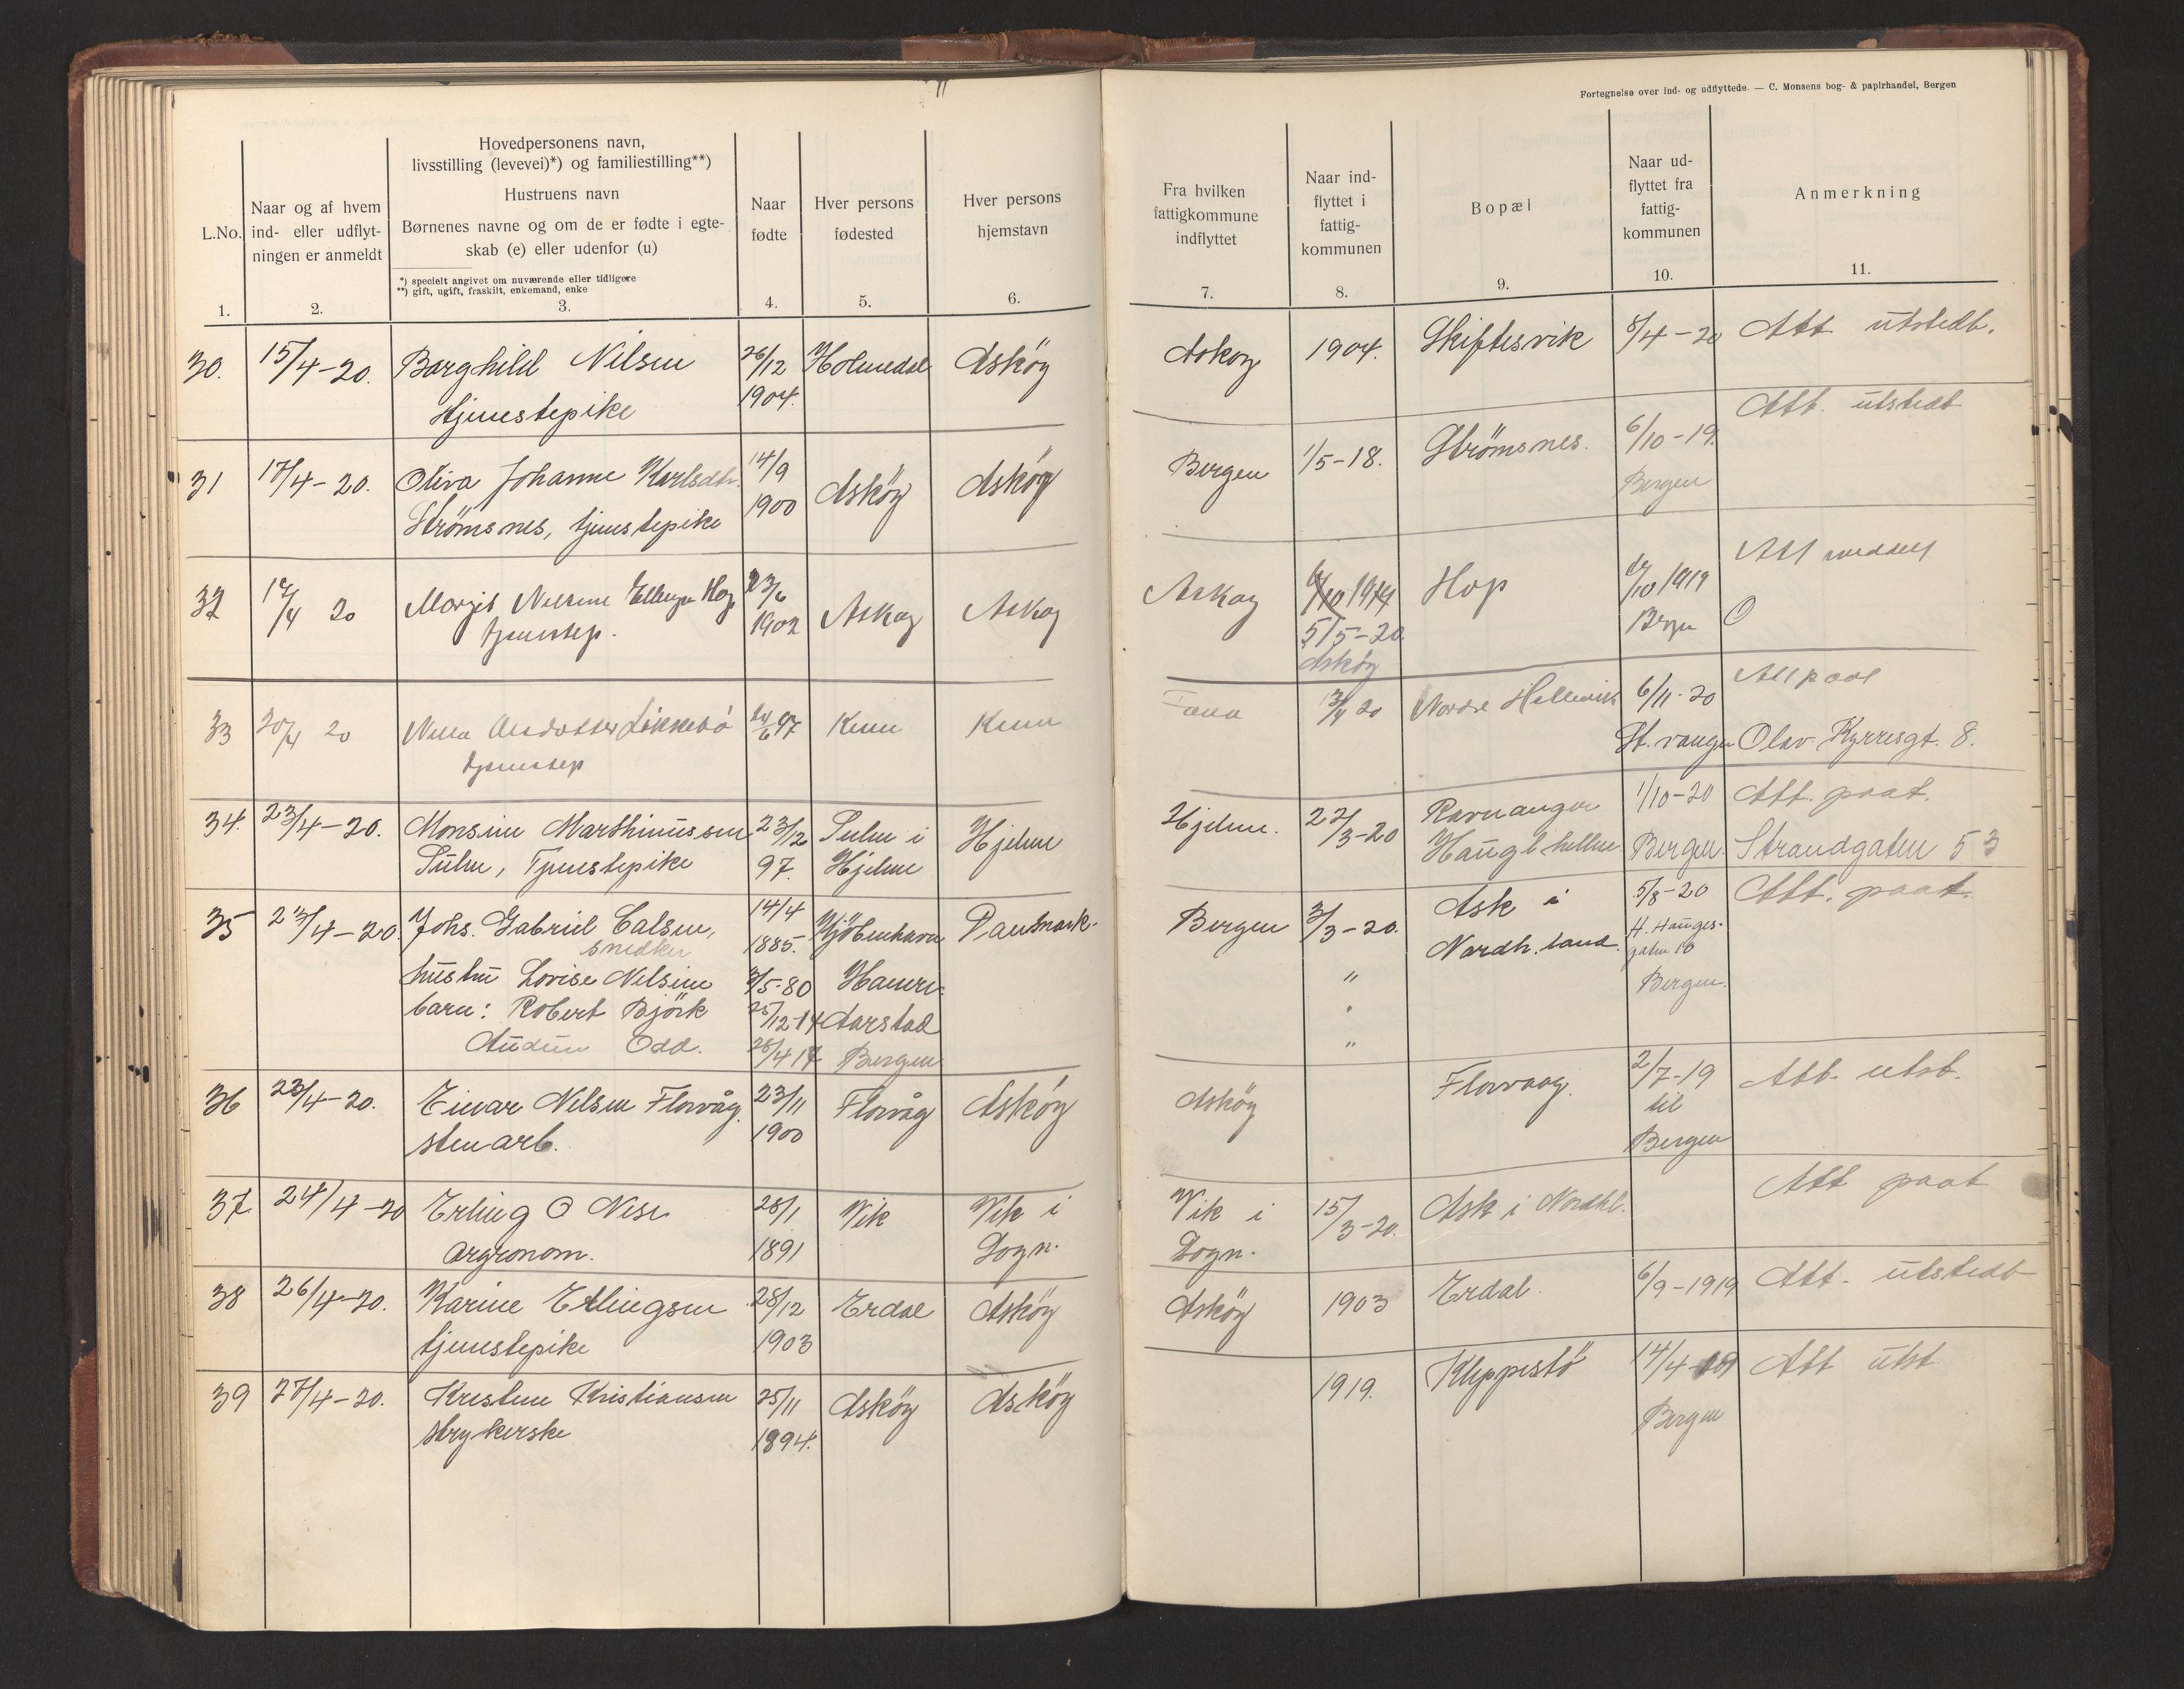 Fortegnelse over ind- og udflyttede. — C. Monsens bog- & papirhandel, Bergen
L.No.
1.
Naar og af hvem
ind- eller udflyt-
ningen er anmeldt
2.
Hovedpersonens navn,
livsstilling (levevei)*) og familiestilling**)
Hustruens navn
Børnenes navne og om de er fødte i egte-
skab (e) eller udenfor (u)
*) specielt angivet om nuværende eller tidligere
**) gift, ugift, fraskilt, enkemand, enke
3.
Naar
fødte
4.
Hver persons
fødested
5.
Hver persons
hjemstavn
6.
Fra hvilken
fattigkommune
indflyttet
7.
Naar ind-
flyttet i
fattig-
kommunen
8.
Bopæl
9.
Naar ud-
flyttet fra
fattig-
kommunen
10.
Anmerkning
11.
30. 15/4-20. Borghild Nilsen 26/12 Holmedal Asköy Askoy 1904. Skiftesvik 8/4-20 Att. utstedt.
tjenestepike 1904.
31 17/4-20. Oliva Johanne Karlsdtr. 14/9 Asköy Asköy Bergen 1/5-18. Strömsnes. 6/10-19. Att. utstedt
Strömsnes, tjenestepike 1900 Bergen
32 /4 20 Margit Nilsine Hop 23/6 Askøy Askøy Askøy Hop /10 1919 Att meddelt
tjenestep. 1902 5/5-20 Bergen
Asköy
33 20/4 20 24/6 97 Kinn Kinn Fana /4 20 Nordre Hellevik 6/11-20 Att paat
tjenestep St.vanger Olav Kyrresgt. 8.
34. 23/4-20. Monsine Marthinussen 23/12 Sulen i Hjelme Hjelme. 22/3-20 Ravnanger 1/10-20 Att. paat.
Sulen, Tjenestepike 97. Hjelme Haugl.hellen Bergen. Strandgaten 53
35 23/4-20. Johs. Gabriel Calsen, 14/4 Kjöbenhavn Danmark. Bergen 3/3-20. Ask i 5/8-20 Att. paat.
snedker 1885. Nordh.land. H. Hauges-
gaten 10
hustru Lovise Nilsine 3/5-80 Hamre " Bergen.
barn: Robert Björk 25/12-14 Aarstad "
Audun Odd. 28/4 17 Bergen "
36 23/4-20. Einar Nilsen Florvåg. 23/11 Florvåg Asköy Asköy Florvaag. 2/7-19 Att. utst.
stenarb. 1900 til
Bergen
37 24/4-20 Erling O Nese 28/1 Vik Vik i Vik i 15/3-20. Ask i Nordhl. Att paat
Argronom. 1891 Sogn. Sogn.
38 26/4-20. Karine Erlingsen 28/12 Erdal Asköy Asköy 1903 Erdal. 6/9-1919 Att. utstedt
tjenestepike 1903
39 27/4-20. Kristine Kristiansen 25/11 Asköy Asköy 1919. Kleppestö 14/4-19 Att utst
strykerske 1894. Bergen